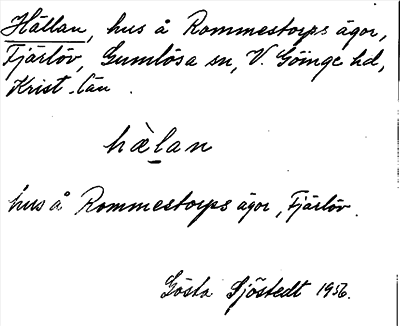 Hällan, hus å Rommestorps ägor,
Fjärlöv, Gumlösa sn, V. Göinge hd,
Krist. län.
hæ̀lan
hus å Rommestorps ägor, Fjärlöv.
Gösta Sjöstedt 1956.